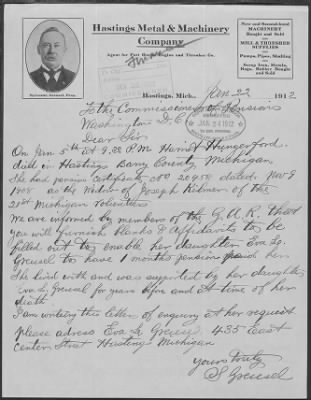 Hastings Metal & Machinery
Company
Agent for Port Huron Engine and Thresher Co.
New and Secondhand
MACHINERY
Bought and Sold
MILL & THRESHER
SUPPLIES
Pumps, Pipe, Shafting
Scrap Iron, Metals,
Rags, Rubber Bought
and Sold
Hastings, Mich., Jan 22 1912
JAN 24 1912
To the Commissioner of Pensions
Washington D.C.
Dear Sir
On Jan 5th at 9.22 P.M. Harriet Hungerford
died in Hastings Barry County, Michigan
She had pension Certificate dated Nov 9
1908 as the Widow of Joseph of the
21st Michigan Volunteers
We are informed by members of the G.A.R. that
you will furnish blanks & Affidavits to be
filled out to enable her daughter Eva L.
Greusel to have 1 months pension her.
She lived with and was supported by her daughter
Eva L. Greusel for years before and at time of her
death
I am writing this letter of enquiry at her request
please adress Eva L. Greusel 435 East
Center Street Hastings Michigan
Yours truly
S Greusel